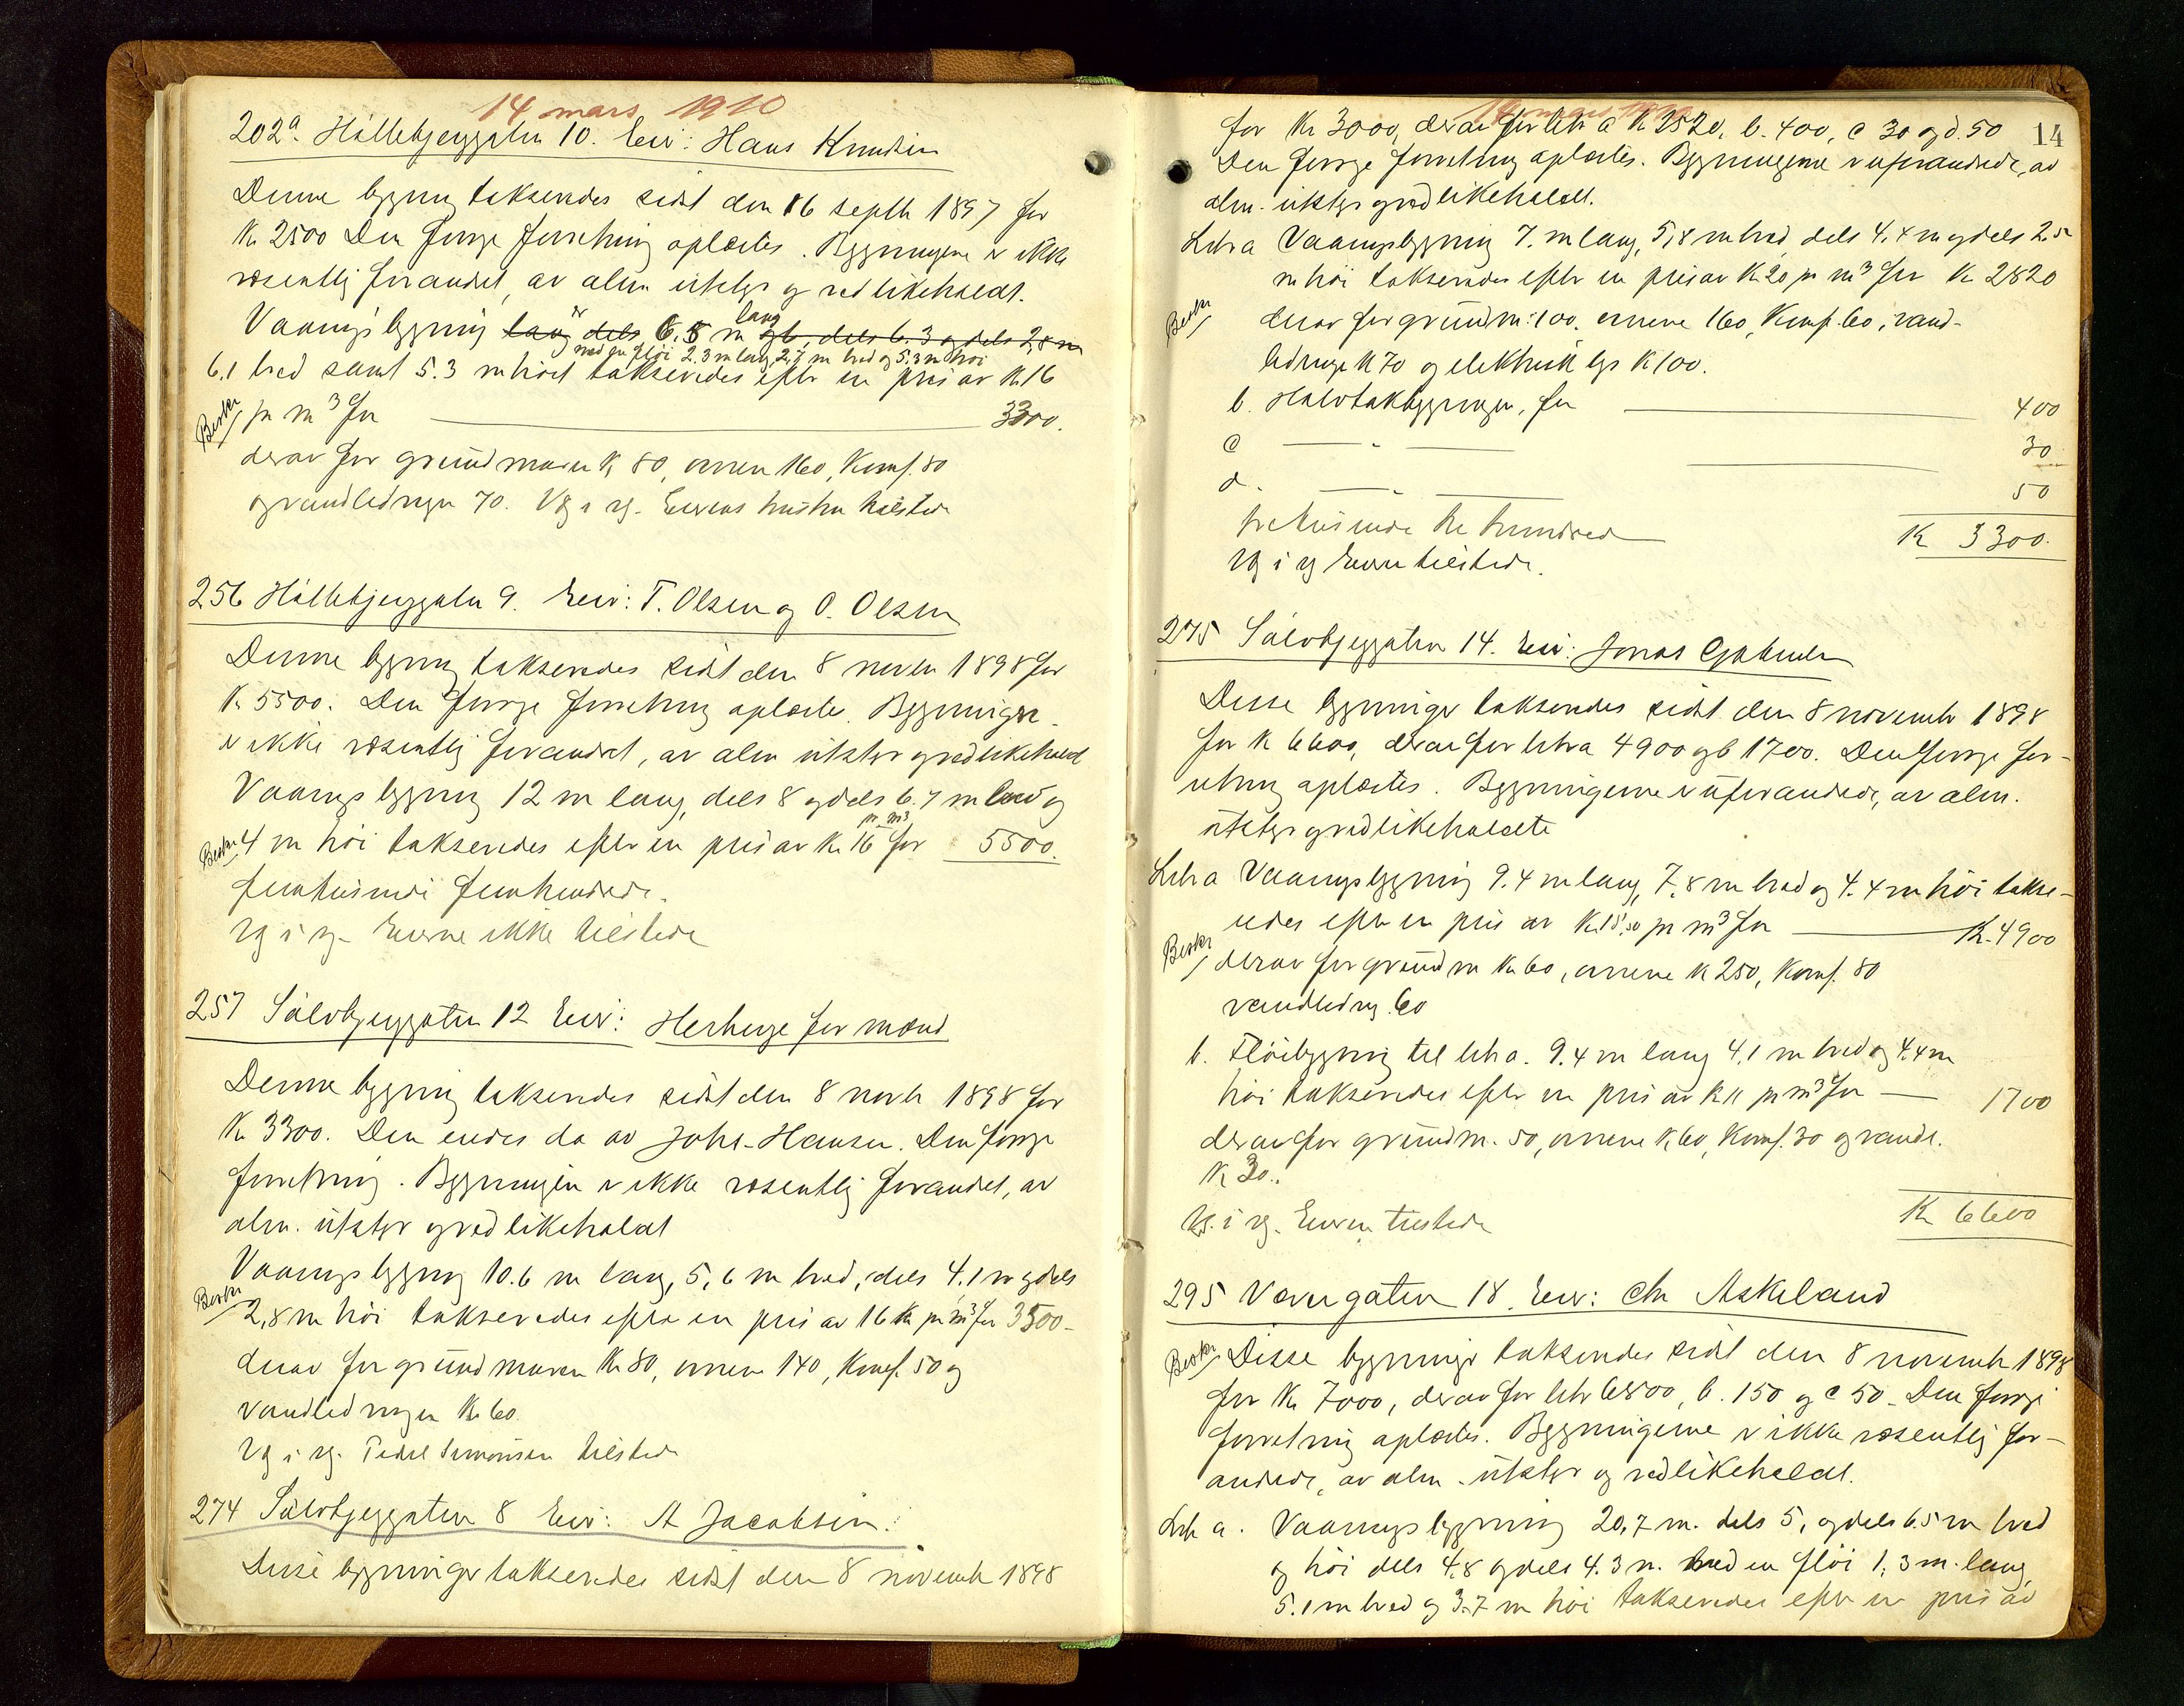 14 mars 1910
202a. Hillebjerggaten 10. Eier: Hans Knudsen
Denne bygning takseredes sidst den 16 septbr 1897 for
Kr 2500 Den forrige forretning oplæstes. Bygningen er ikke
væsentlig forandret, av alm utstyr og vedlikeholdt.
Vaaningsbygning lang dels 6.5 m lang og b, dels 6.3 og dels 2,8 m
med en fløi 2.3 m lang, 2,7 m bred og 5.3 m høi
6.1 bred samt 5.3 m høit takseredes efter en pris av Kr 16
Besk. pr m3 for 3300.
derav for grundmuren Kr 80, ovnen 160, Komf. 80
og vandledningen 70. Vg i rg. Eierens hustru tilstede
256 Hillebjerggaten 9. Eier: T. Olsen og O. Olsen
Denne bygning takseredes sidst den 8 novbr 1898 for
Kr 5500. Den forrige forretning oplæstes. Bygningen
er ikke væsentlig forandret, av alm utstyr og vedlikeholdt
Vaaningsbygning 12 m lang, dels 8 og dels 6.7 m bred og
Besk. 4 m høi takseredes efter en pris av Kr 16 pr m3 for 5500.
femtusinde femhundrede.
Vg i rg. Eierne ikke tilstede
257 Sølvbjerggaten 12 Eier: Herberge for mænd
Denne bygning takseredes sidst den 8 novbr 1898 for
Kr 3300. Den eiedes da av Johs. Hansen. Den forrige
forretning. Bygningen er ikke væsentlig forandret, av
alm. utstyr og vedlikeholdt
Vaaningsbygning 10.6 m lang, 5,6 m bred, dels 4.1 m og dels
Besk. 2,8 m høi takseredes efter en pris av 16 kr pr m3 for 3500-
derav for grundmuren Kr 80, ovnen 140, Komf. 50 og
vandledningen Kr 60.
Vg i rg. Peder Simonsen tilstede
274 Sølvbjerggaten 8 Eier: A Jacobsen.
Disse bygninger takseredes sidst den 8 november 1898
14 mars 1910
14
for Kr 3000, derav for litr a Kr 2520, b. 400, c 30 og d. 50
Den forrige forretning oplæstes. Bygningerne er uforandrede, av
alm. utstyr og vedlikeholdt.
Litra a Vaaningsbygning 7. m lang, 5,8 m bred, dels 4,4 m og dels 2.5
m høi takseredes efter en pris av Kr 20 pr m3 for Kr 2820
Besk. derav for grundm: 100. ovnene 160, Komf. 60, vand-
ledninge Kr 70 og elektrisk lys Kr 100.
b. Halvtakbygningen, for 400
c - " - 30
d. - " - 50
tretusinde tre hundred Kr 3300.
Vg i rg Eieren tilstede.
275 Sølvbjerggaten 14. Eier: Jonas Gabrielsen
Disse bygninger takseredes sidst den 8 november 1898
for Kr 6600, derav for litra 4900 og b 1700. Den forrige for-
retning oplæstes. Bygningerne er uforandrede, av alm.
utstyr og vedlikeholdte
Litra a Vaaningsbygning 9.4 m lang, 7,8 m bred og 4.4 m høi takse-
redes efter en pris av Kr 15,50 pr m3 for Kr. 4900
Besk. derav for grundm Kr 60, ovnene Kr 250, Komf. 80
vandledng. 60
b. Fløibygning til litr a. 9.4 m lang 4,1 m bred og 4.4 m
høi takseredes efter en pris av Kr 11 pr m3 for 1700
derav for grundm. 50, ovnene Kr 60, Komf. 30 og vandl.
Kr 30..
Vg. i rg. Eieren tilstede Kr 6600
295 Vævergaten 18. Eier: Chr Askeland
Besk. Disse bygninger takseredes sidst den 8 november 1898
for Kr 7000, derav for litr 6800, b. 150 og c 50. Den forrige
forretning oplæstes. Bygningerne er ikke væsentlig for-
andrede, av alm. utstyr og vedlikeholdt.
Litr a. Vaaningsbygning 20,7 m. dels 5, og dels 6.5 m bred
og høi dels 4.8 og dels 4.3 m. med en fløi 1,3 m. lang,
5.1 m bred og 3.7 m høi takseredes efter en pris av